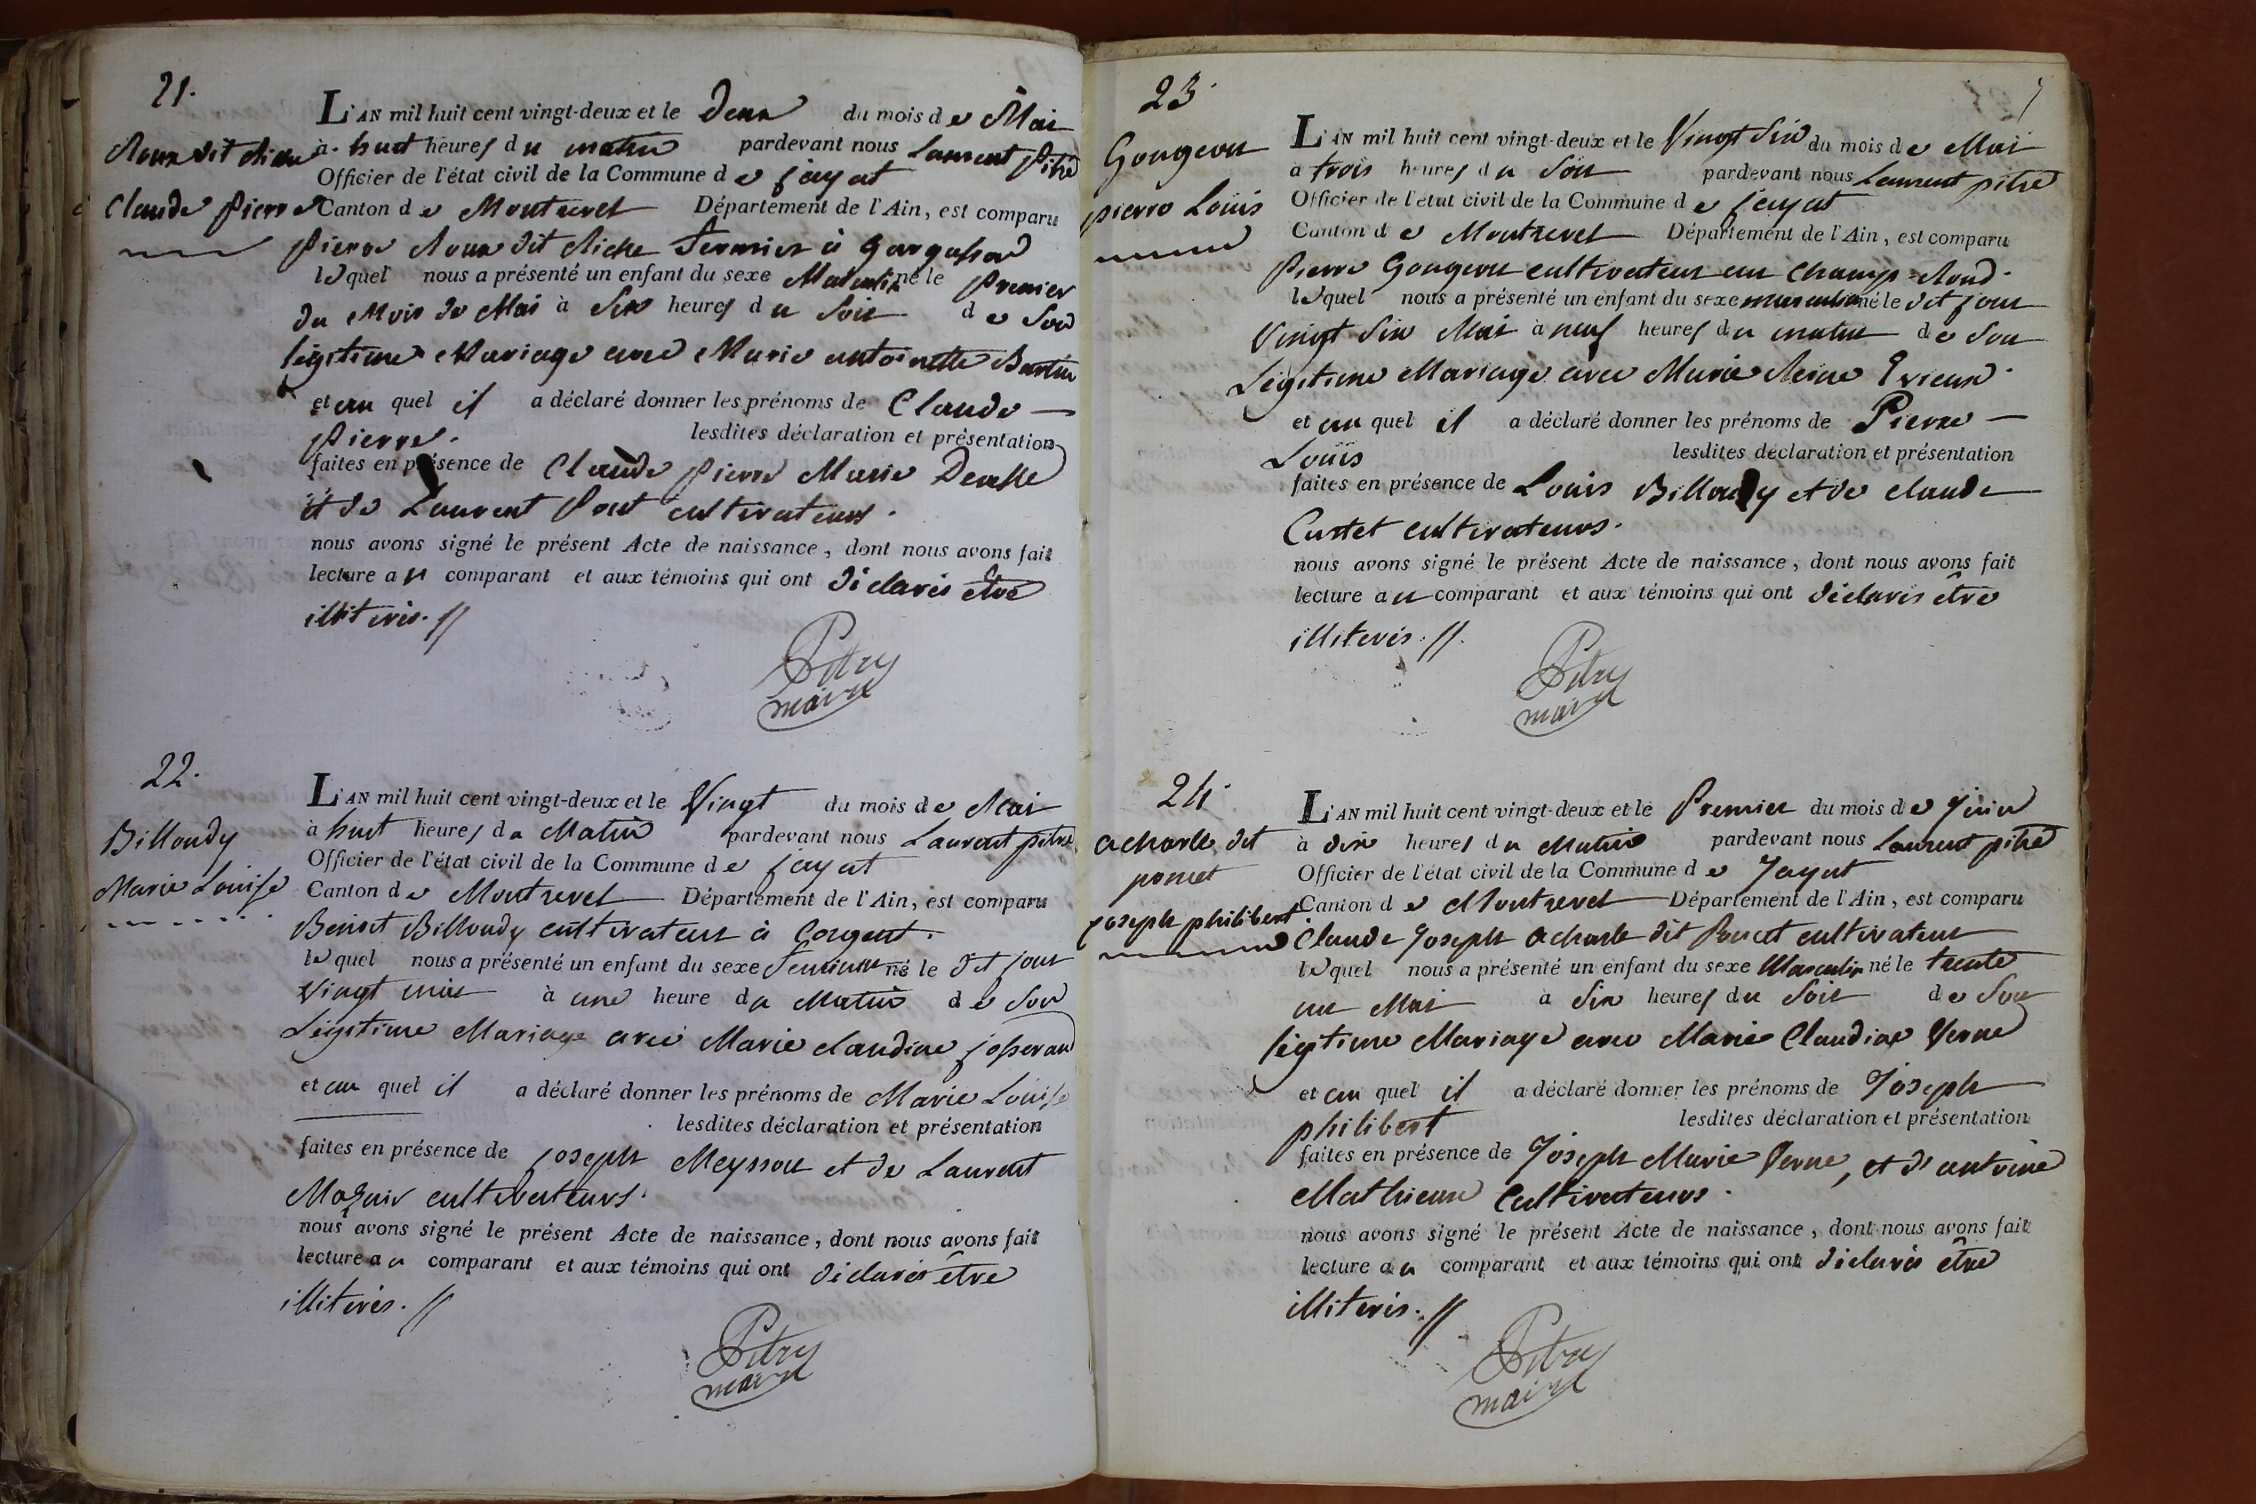 21.
Roux dit Riche
Claude Pierre
L'AN mil huit cent vingt-deux et le Deux du mois de Mai
à huit heures du matin pardevant nous Laurent Pitre
Officier de l'état civil de la Commune de jayat
Canton de Montrevel Département de l'Ain, est comparu
Pierre Roux dit Riche fermier à
lequel nous a présenté un enfant du sexe Masculin né le premier
du Mois de Mai à Six heures du Soir de Son
légitime Mariage avec Marie antoinette
et au quel il a déclaré donner les prénoms de Claude
Pierre. lesdites déclaration et présentation
faites en présence de Claude Pierre Marie
et de Laurent Pont cultivateurs.
nous avons signé le présent Acte de naissance, dont nous avons fait
lecture au comparant et aux témoins qui ont déclarés être
illiterés. //
Pitre
maire
22.
Billoudy
Marie Louise
L'AN mil huit cent vingt-deux et le Vingt du mois de Mai
à huit heures du Matin pardevant nous Laurent pitre
Officier de l'état civil de la Commune de jayat
Canton de Montrevel Département de l'Ain, est comparu
Benoit Billoudy cultivateur à Congent.
lequel nous a présenté un enfant du sexe feminin né le dit jour
vingt mai à une heure du Matin de Son
Légitime Mariage avec Marie claudine josserand
et au quel il a déclaré donner les prénoms de Marie Louise
lesdites déclaration et présentation
faites en présence de joseph Meysson et de Laurent
Mazuir cultivateurs.
nous avons signé le présent Acte de naissance, dont nous avons fait
lecture au comparant et aux témoins qui ont déclarés être
illiterés. //
Pitre
maire
23.
Gougeon
pierre Louis
L'AN mil huit cent vingt-deux et le Vingt Six du mois de Mai
à trois heures du Soir pardevant nous Laurent pitre
Officier de l'état civil de la Commune de jayat
Canton de Montrevel Département de l'Ain, est comparu
Pierre Gougeon cultivateur au Champ-Rond.
lequel nous a présenté un enfant du sexe masculin né le dit jour
Vingt Six Mai à neuf heures du matin de Son
Légitime Mariage avec Marie Reine Evieux.
et au quel il a déclaré donner les prénoms de Pierre
Louis lesdites déclaration et présentation
faites en présence de Louis Billoudy et de claude
Curtet cultivateurs.
nous avons signé le présent Acte de naissance, dont nous avons fait
lecture au comparant et aux témoins qui ont déclarés être
illiterés. //.
Pitre
maire
24.
acharle dit
poncet
joseph philibert
L'AN mil huit cent vingt-deux et le Premier du mois de Juin
à dix heures du Matin pardevant nous Laurent pitre
Officier de l'état civil de la Commune de Jayat
Canton de Montrevel Département de l'Ain, est comparu
Claude Joseph acharle dit Poncet cultivateur
lequel nous a présenté un enfant du sexe Masculin né le trente
un Mai à Six heures du Soir de Son
légitime Mariage avec Marie Claudine Verne
et au quel il a déclaré donner les prénoms de Joseph
philibert lesdites déclaration et présentation
faites en présence de Joseph Marie Verne, et d'antoine
Mathieux Cultivateurs.
nous avons signé le présent Acte de naissance, dont nous avons fait
lecture au comparant et aux témoins qui ont déclarés être
illiterés. //
Pitre
maire